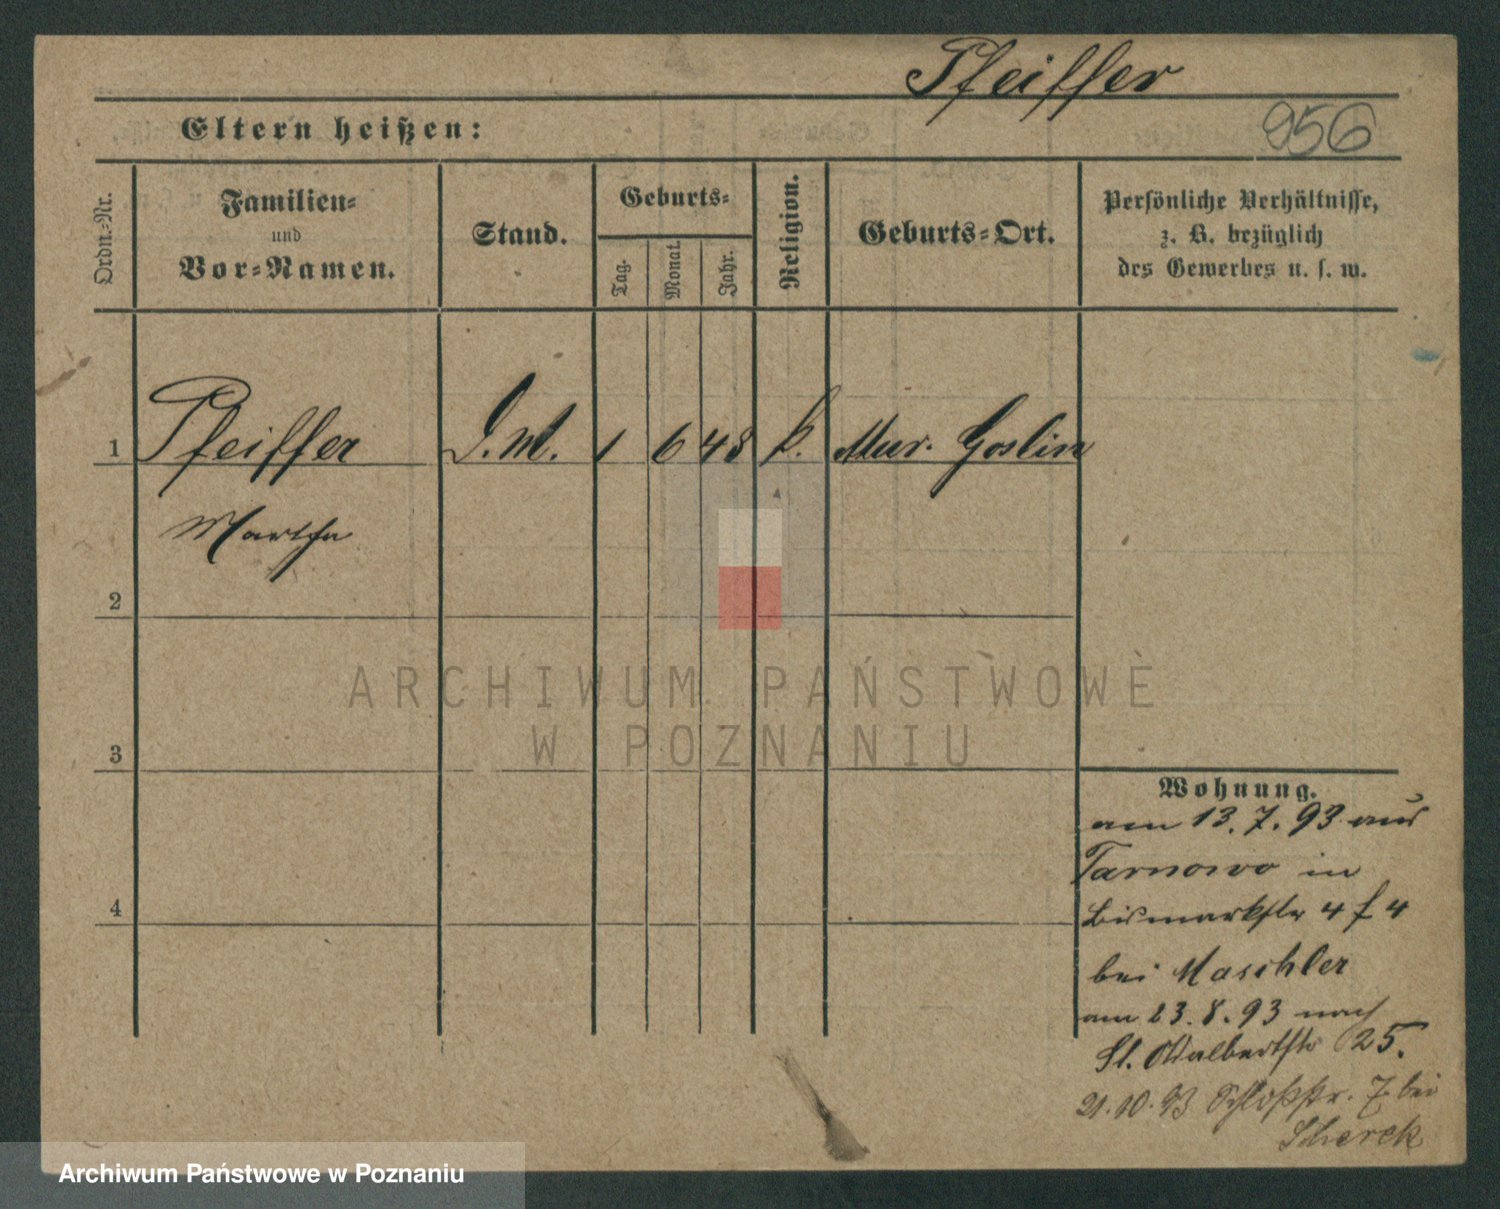 Pfeiffer
956
Eltern heißen:
Ordn.-Nr.
Familien-
und
Vor-Namen.
Stand.
Geburts-
Tag.
Monat.
Jahr.
Religion.
Geburts-Ort.
Persönliche Verhältnisse,
z. B. bezüglich
des Gewerbes u. s. w.
1 Pfeiffer 1 6 48 k. Mur. Goslin
Martha
2
3
4
Wohnung.
am 13. 7. 93 aus
Tarnowo in
Bismarkstr 4 f 4
bei Maschler
am 23. 8. 93 nach
St. Adalbertstr 25.
21. 10. 93 Schloßstr. 7 bei
Scherek
ARCHIWUM PAŃSTWOWE
W POZNANIU
Archiwum Państwowe w Poznaniu